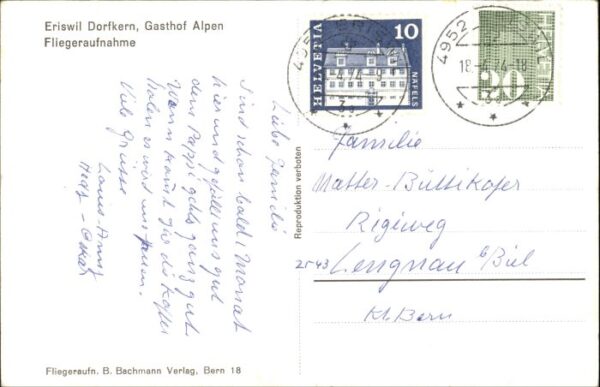 Eriswil Dorfkern, Gasthof Alpen
Fliegeraufnahme
Liebe Familie
Sind schon bald 1 Monat
hier und gefällt uns gut
dem Pappi gehts ganz gut.
Wann kommt Ihr die Koffer
holen es würd uns freuen.
Viele Grüsse
Hedy - Oskar
Reproduktion verboten
HELVETIA
10
NÄFELS
4952
18.-4.74-9
HELVETIA
20
4952
18.-4.74-18
Familie
Matter-Büttikofer
Rigiweg
2543 Lengnau b/Biel
Kt. Bern
Fliegeraufn. B. Bachmann Verlag, Bern 18